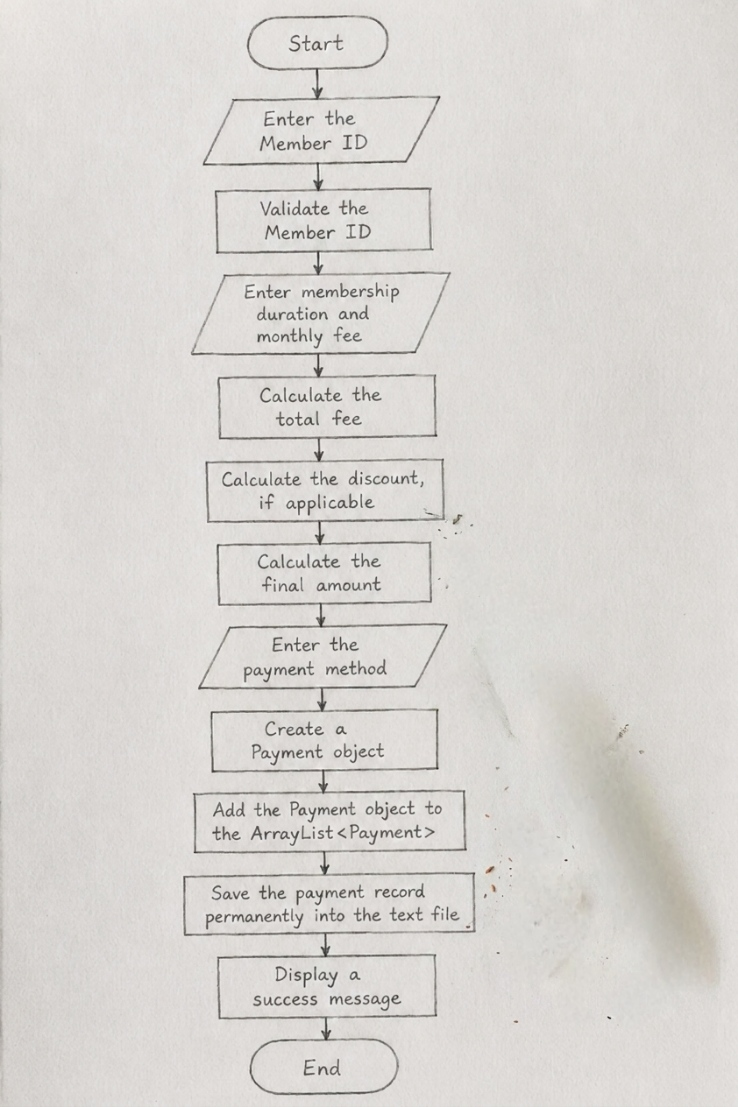 Start
Enter the
Member ID
Validate the
Member ID
Enter membership
duration and
monthly fee
Calculate the
total fee
Calculate the discount,
if applicable
Calculate the
final amount
Enter the
payment method
Create a
Payment object
Add the Payment object to
the ArrayList<Payment>
Save the payment record
permanently into the text file
Display a
success message
End